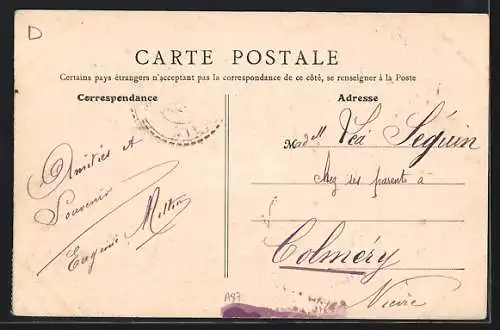 D
CARTE POSTALE
Certains pays étrangers n'acceptant pas la correspondance de ce côté, se renseigner à la Poste
Correspondance
Adresse
Amitiés et
Souvenir
Eugénie
Mad^elle Séguin
chez ses parents à
Colméry
Nièvre
A87